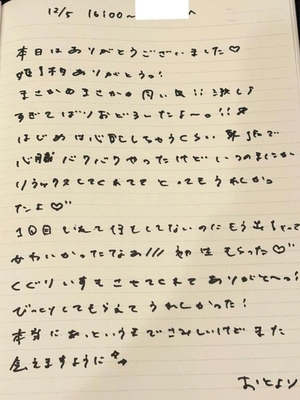 12/5 16:00〜 へ
本日はありがとうございました♡
姫予約ありがとうっ!
まさかのまさかの 円い!! 激しょ
すぎてばりおどろいたよ〜。!!
はじめは心配しちゃうくらい 緊張で
心臓バクバクやったけど いつのまにか
リラックスしてくれてて とってもうれしかっ
たよ♡
1回目 いれて何もしてないのにもう出ちゃって
かわいかったなあ/// 初生 もらった♡
くぐりいすもさせてくれて ありがと〜っ!
びっくりしてもらえて うれしかった!
本当にあっというまでさみしいけど また
会えますように
おとより